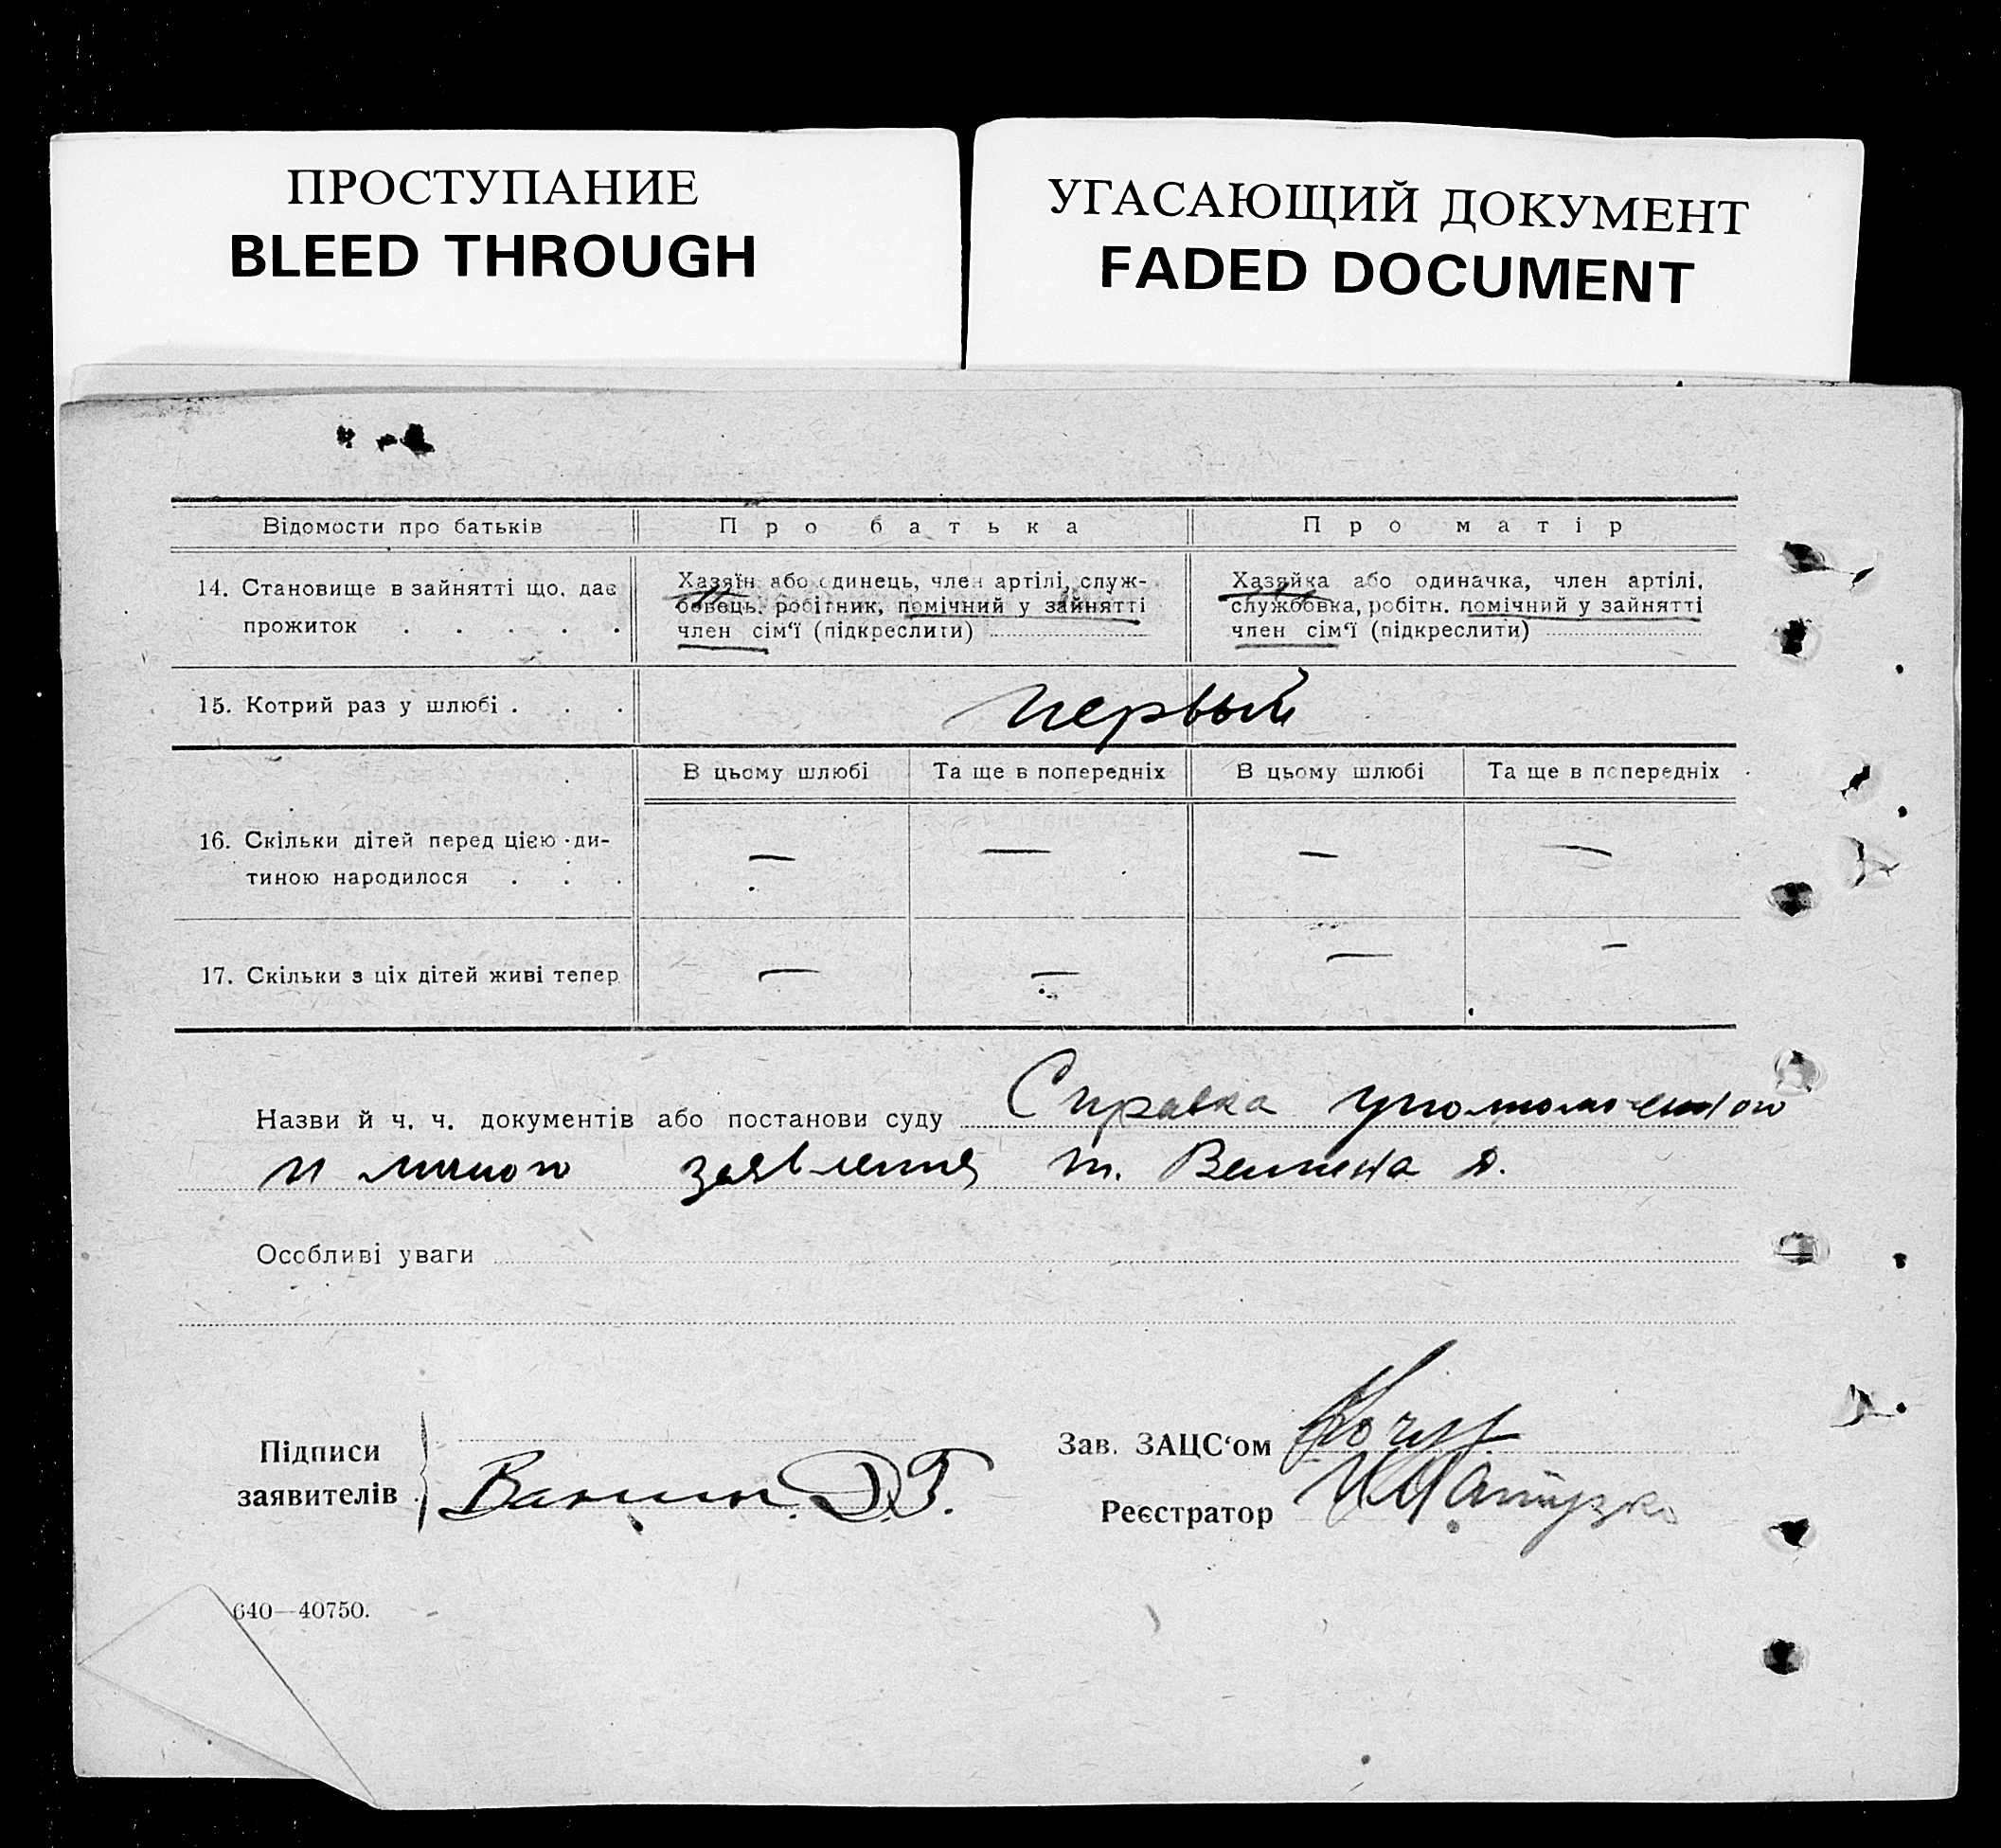 ПРОСТУПАНИЕ
BLEED THROUGH
УГАСАЮЩИЙ ДОКУМЕНТ
FADED DOCUMENT
Відомости про батьків Про батька Про матір
14. Становище в зайнятті що, дає
прожиток . . . . .
Хазяїн або одинець, член артілі, служ-
бовець, робітник, помічний у зайнятті
член сім'ї (підкреслити)
Хазяйка або одиначка, член артілі,
службовка, робітн. помічний у зайнятті
член сім'ї (підкреслити)
15. Котрий раз у шлюбі . . . первый
В цьому шлюбі Та ще в попередніх В цьому шлюбі Та ще в попередніх
16. Скільки дітей перед цією ди-
тиною народилося . . . — — — —
17. Скільки з ціх дітей живі тепер — — — —
Назви й ч. ч. документів або постанови суду Справка
и заявления т. Д.
Особливі уваги
Підписи
заявителів Д.Г.
Зав. ЗАЦС'ом
Реєстратор
640—40750.